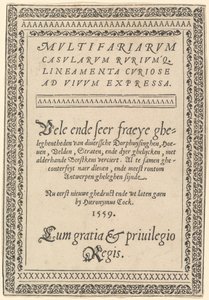 MVLTIFARIARVM
CASVLARVM RVRIVMQ.
LINEAMENTA CVRIOSE
AD VIVVM EXPRESSA.
Vele ende seer fraeye ghe-
legentheden van diversche Dorphuysinghen, Hoe-
ven, Velden, Straten, ende dyer ghelijcken, met
alderhande Beestkens verciert. Al te samen ghe-
conterfeyt naer dleven, ende meest rontom
Antwerpen gheleghen sijnde.
Nu eerst nieuwe ghedruct ende wt laten gaen
by Hieronymus Cock.
1559.
Cum gratia & priuilegio
Regis.